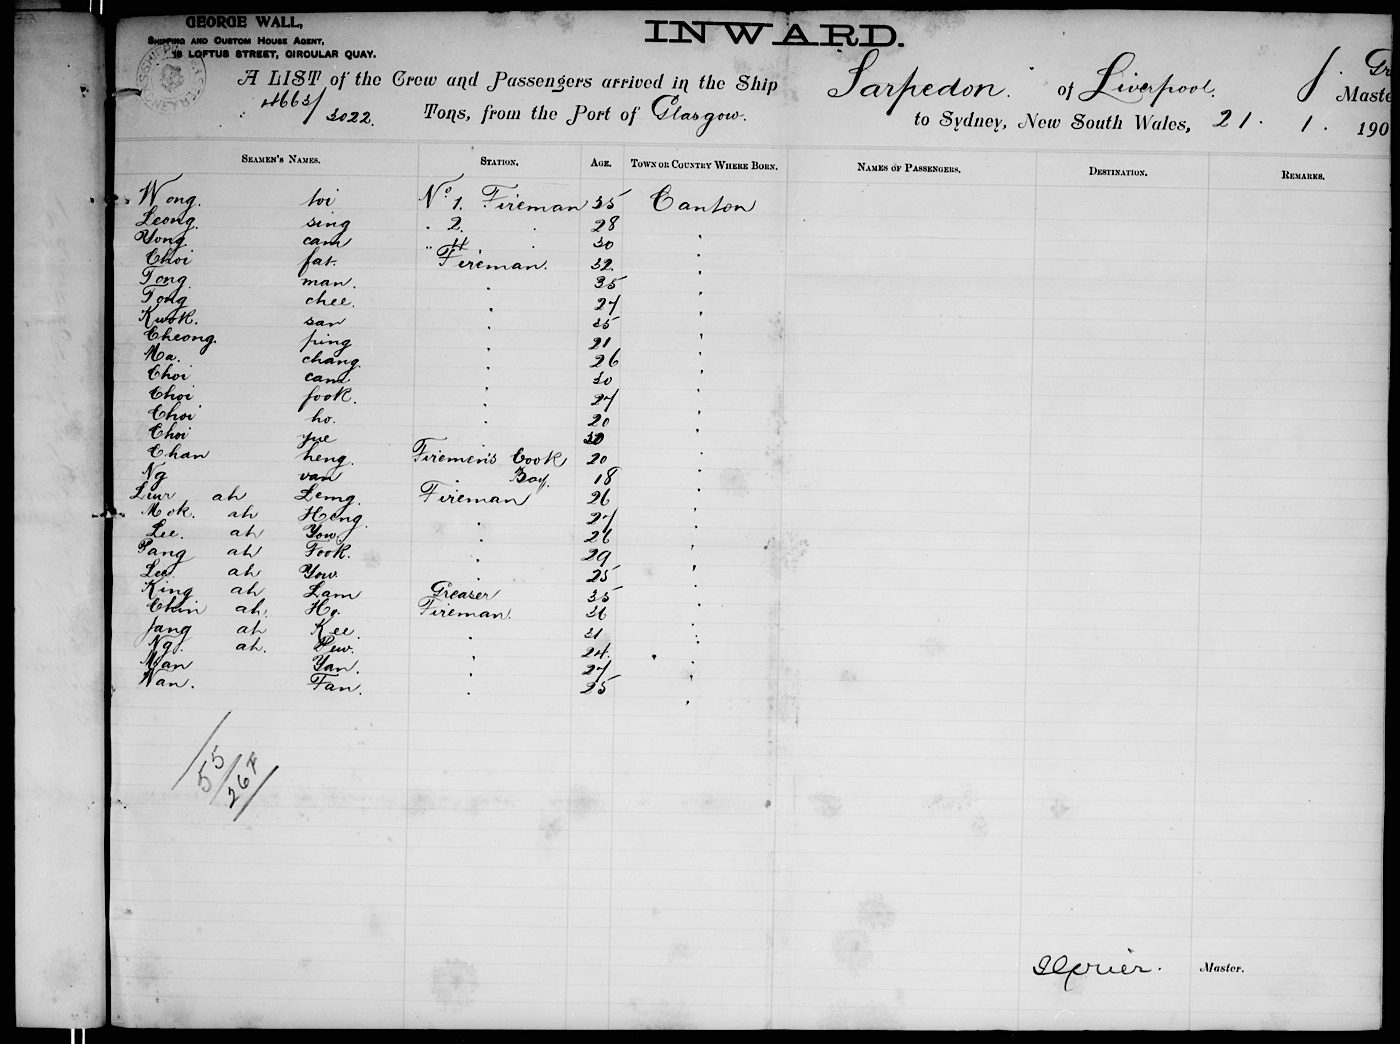 GEORGE WALL,
SHIPPING AND CUSTOM HOUSE AGENT,
18 LOFTUS STREET, CIRCULAR QUAY.
INWARD.
A LIST of the Crew and Passengers arrived in the Ship Sarpedon. of Liverpool. J. Gr
Maste
4663/3022. Tons, from the Port of Glasgow. to Sydney, New South Wales, 21. 1. 190
SEAMEN'S NAMES. STATION. AGE. TOWN OR COUNTRY WHERE BORN. NAMES OF PASSENGERS. DESTINATION. REMARKS.
Wong. loi No 1. Fireman 35 Canton
Leong. sing " 2. " 28 "
Yong. cam " 4 " 30 "
Choi fat. Fireman. 32 "
Tong man. " 35 "
Tong chee. " 27 "
Kwok. san " 35 "
Cheong. ping " 21 "
Ma. chang " 26 "
Choi cam " 30 "
Choi fook. " 27 "
Choi ho. " 20 "
Choi yue 30 "
Chan heng. Firemen's Cook 20 "
Ng van " Boy. 18 "
ah Fireman 26 "
Mok. ah Hong. " 27 "
Lee. ah Yow " 26 "
Pang ah Fook. " 29 "
Lee ah Yow " 25 "
King ah Lam Greaser 35 "
Chin ah. Ho. Fireman. 36 "
ah Kee. " 31 "
Ng. ah. " 24. "
Man Yan. " 27 "
Wan. Fan. " 25 "
55/26 F
Master.